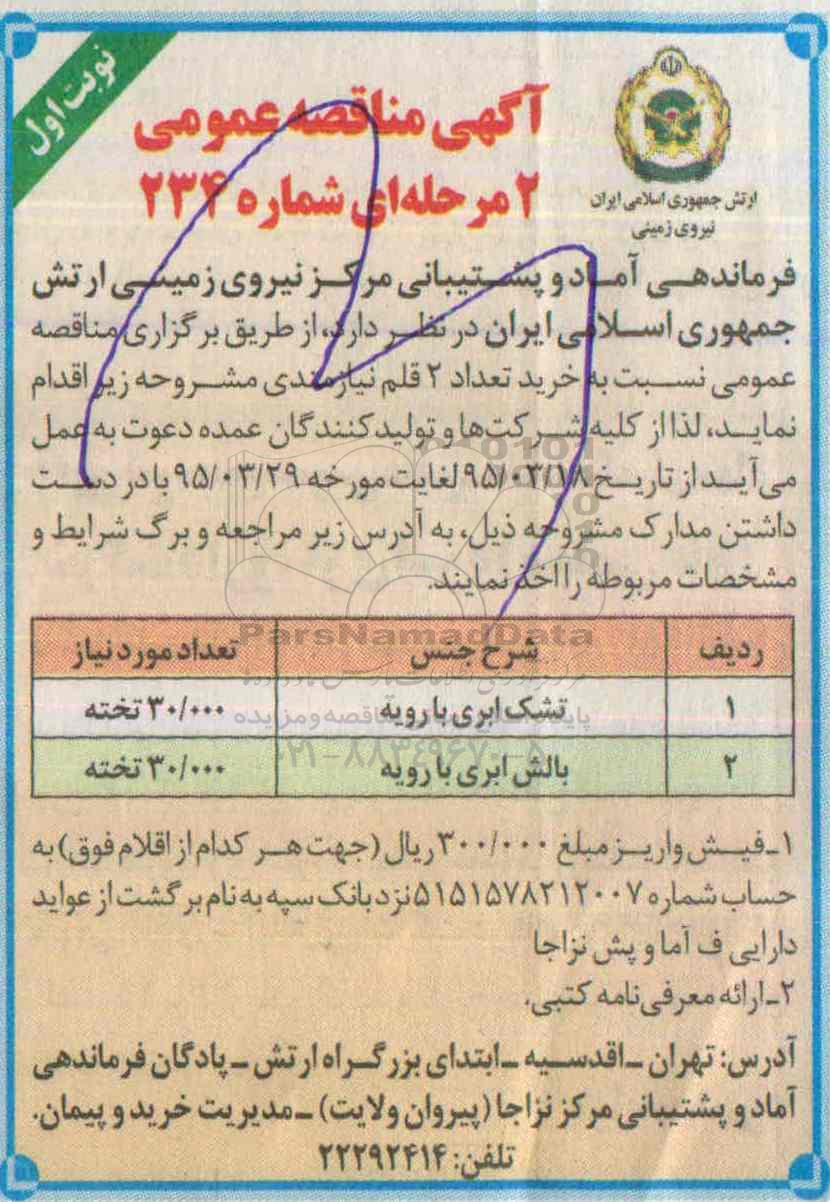 نوبت اول
آگهی مناقصه عمومی
۲ مرحله‌ای شماره ۲۳۴
ارتش جمهوری اسلامی ایران
نیروی زمینی
فرماندهی آماد و پشتیبانی مرکز نیروی زمینی ارتش
جمهوری اسلامی ایران در نظر دارد، از طریق برگزاری مناقصه
عمومی نسبت به خرید تعداد ۲ قلم نیازمندی مشروحه زیر اقدام
نماید، لذا از کلیه شرکت‌ها و تولیدکنندگان عمده دعوت به عمل
می‌آید از تاریخ ۹۵/۰۳/۱۸ لغایت مورخه ۹۵/۰۳/۲۹ با در دست
داشتن مدارک مشروحه ذیل، به آدرس زیر مراجعه و برگ شرایط و
مشخصات مربوطه را اخذ نمایند.
ParsNamadData
ردیف شرح جنس تعداد مورد نیاز
۱ تشک ابری با رویه ۳۰/۰۰۰ تخته
۲ بالش ابری با رویه ۳۰/۰۰۰ تخته
۱ـ فیش واریز مبلغ ۳۰۰/۰۰۰ ریال (جهت هر کدام از اقلام فوق) به
حساب شماره ۵۱۵۱۵۷۸۲۱۲۰۰۷ نزد بانک سپه به نام برگشت از عواید
دارایی ف آما و پش نزاجا
۲ـ ارائه معرفی‌نامه کتبی.
آدرس: تهران ـ اقدسیه ـ ابتدای بزرگراه ارتش ـ پادگان فرماندهی
آماد و پشتیبانی مرکز نزاجا (پیروان ولایت) ـ مدیریت خرید و پیمان.
تلفن: ۲۲۲۹۲۴۱۴